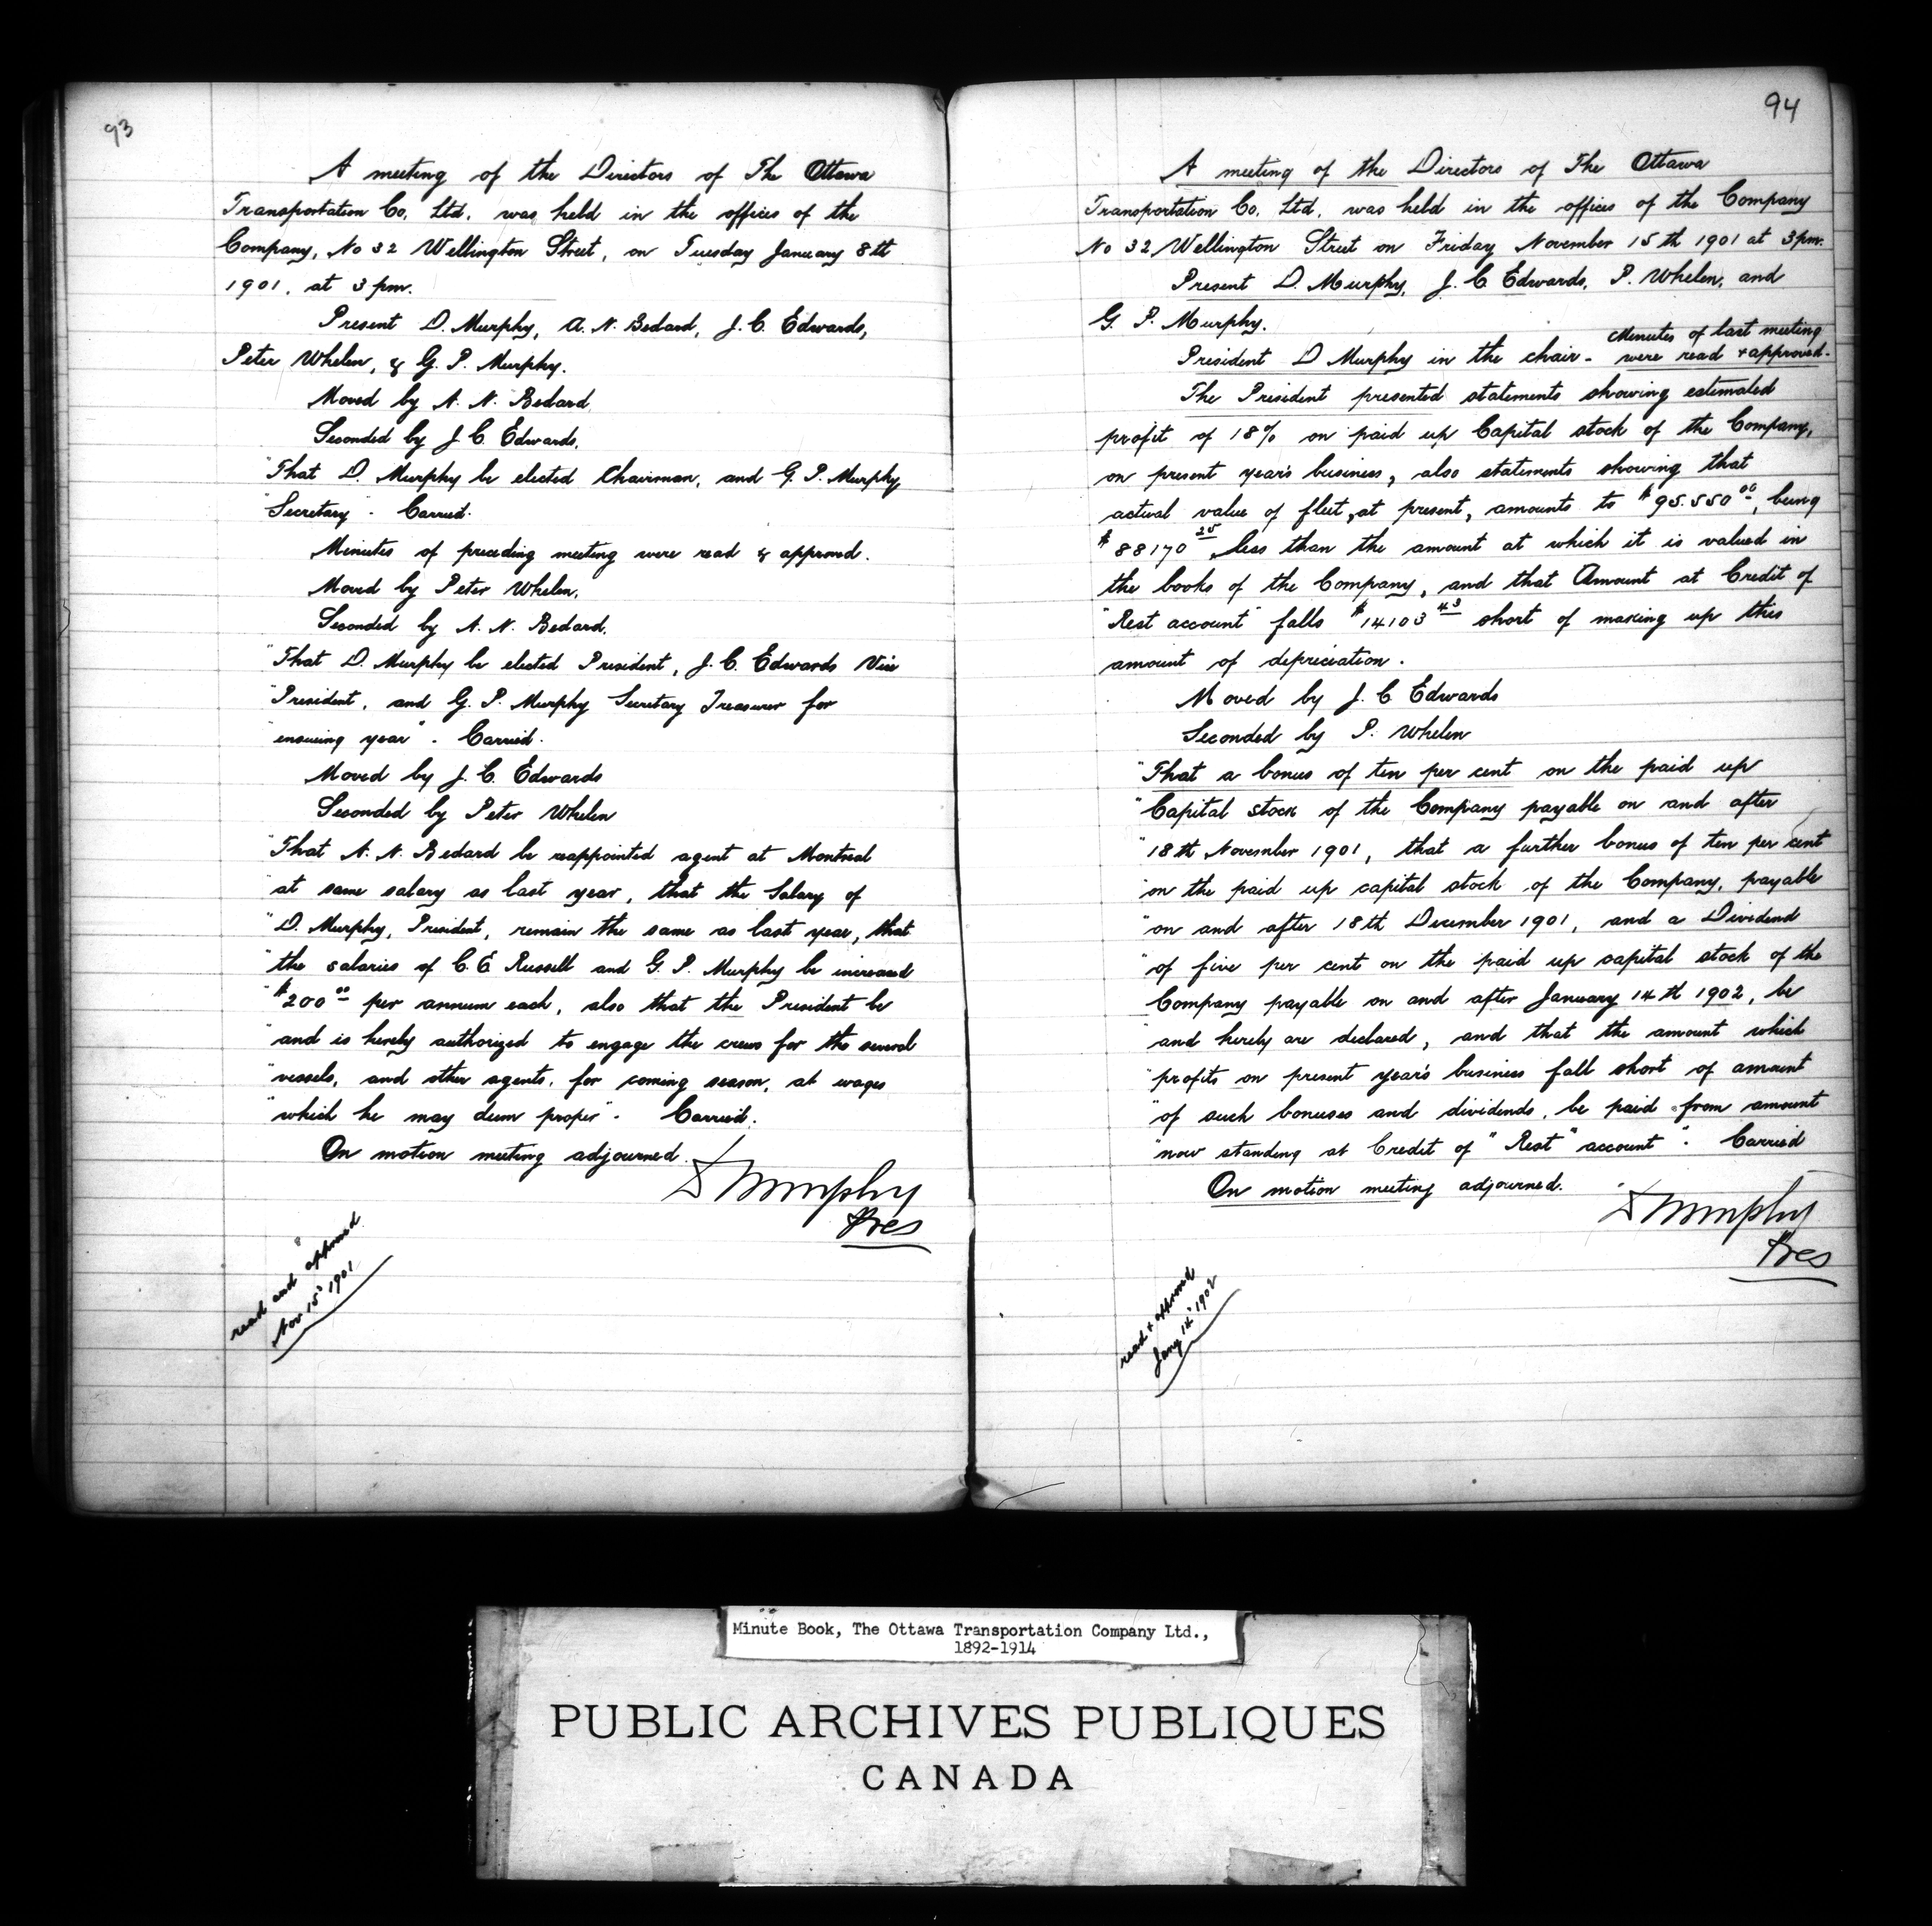 93
A meeting of the Directors of The Ottawa
Transportation Co. Ltd. was held in the offices of the
Company, No 32 Wellington Street, on Tuesday January 8th
1901. at 3 pm.
Present D. Murphy, A. N. Bedard, J. C. Edwards,
Peter Whelen, & G. P. Murphy.
Moved by A. N. Bedard
Seconded by J. C. Edwards.
"That D. Murphy be elected Chairman, and G. P. Murphy
"Secretary". Carried.
Minutes of preceding meeting were read & approved.
Moved by Peter Whelen.
Seconded by A. N. Bedard.
"That D. Murphy be elected President, J. C. Edwards Vice
"President, and G. P. Murphy Secretary Treasurer for
"ensueing year". Carried.
Moved by J. C. Edwards
Seconded by Peter Whelen
"That A. N. Bedard be reappointed agent at Montreal
"at same salary as last year, that the Salary of
"D. Murphy, President, remain the same as last year, that
"the salaries of C. E. Russell and G. P. Murphy be increased
"$200 00 per annum each, also that the President be
"and is hereby authorized to engage the crews for the several
"vessels, and other agents, for coming season, at wages
"which he may deem proper". Carried.
On motion meeting adjourned.
D Murphy
Pres
read and approved
Nov 15" 1901
94
A meeting of the Directors of The Ottawa
Transportation Co. Ltd. was held in the offices of the Company
No 32 Wellington Street on Friday November 15th 1901 at 3pm.
Present D. Murphy, J. C Edwards, P. Whelen, and
G. P. Murphy.
President D Murphy in the chair - Minutes of last meeting
were read + approved.
The President presented statements showing estimated
profit of 18% on paid up Capital stock of the Company,
on present year's business, also statements showing that
actual value of fleet, at present, amounts to $95.550 00, being
$88170 25 less than the amount at which it is valued in
the books of the Company, and that Amount at Credit of
"Rest account" falls $14103 43 short of making up this
amount of depreciation.
Moved by J. C Edwards
Seconded by P. Whelen
"That a bonus of ten per cent on the paid up
"Capital stock of the Company payable on and after
"18th November 1901, that a further bonus of ten per cent
"on the paid up capital stock of the Company, payable
"on and after 18th December 1901, and a Dividend
"of five per cent on the paid up capital stock of the
Company payable on and after January 14th 1902, be
"and hereby are declared, and that the amount which
"profits on present year's business fall short of amount
"of such bonuses and dividends, be paid from amount
"now standing at Credit of "Rest" account". Carried
On motion meeting adjourned.
D Murphy
Pres
read + approved
Jany 14" 1902
Minute Book, The Ottawa Transportation Company Ltd.,
1892-1914
PUBLIC ARCHIVES PUBLIQUES
CANADA